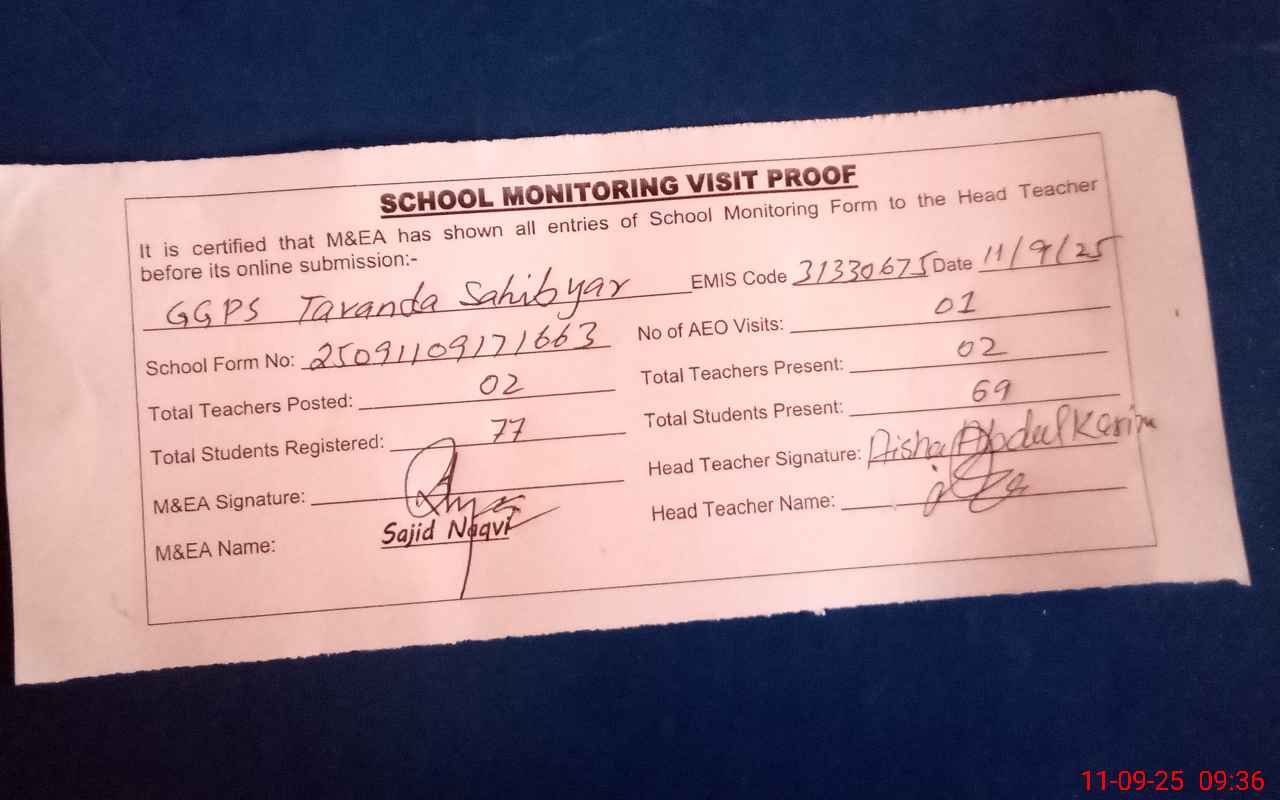 SCHOOL MONITORING VISIT PROOF
It is certified that M&EA has shown all entries of School Monitoring Form to the Head Teacher
before its online submission:-
GGPS Taranda Sahibyar EMIS Code 31330675 Date 11/9/25
School Form No: 25091109171663 No of AEO Visits: 01
Total Teachers Posted: 02 Total Teachers Present: 02
Total Students Registered: 77 Total Students Present: 69
M&EA Signature: Head Teacher Signature: Aisha Abdul Karim
M&EA Name: Sajid Naqvi Head Teacher Name:
11-09-25 09:36